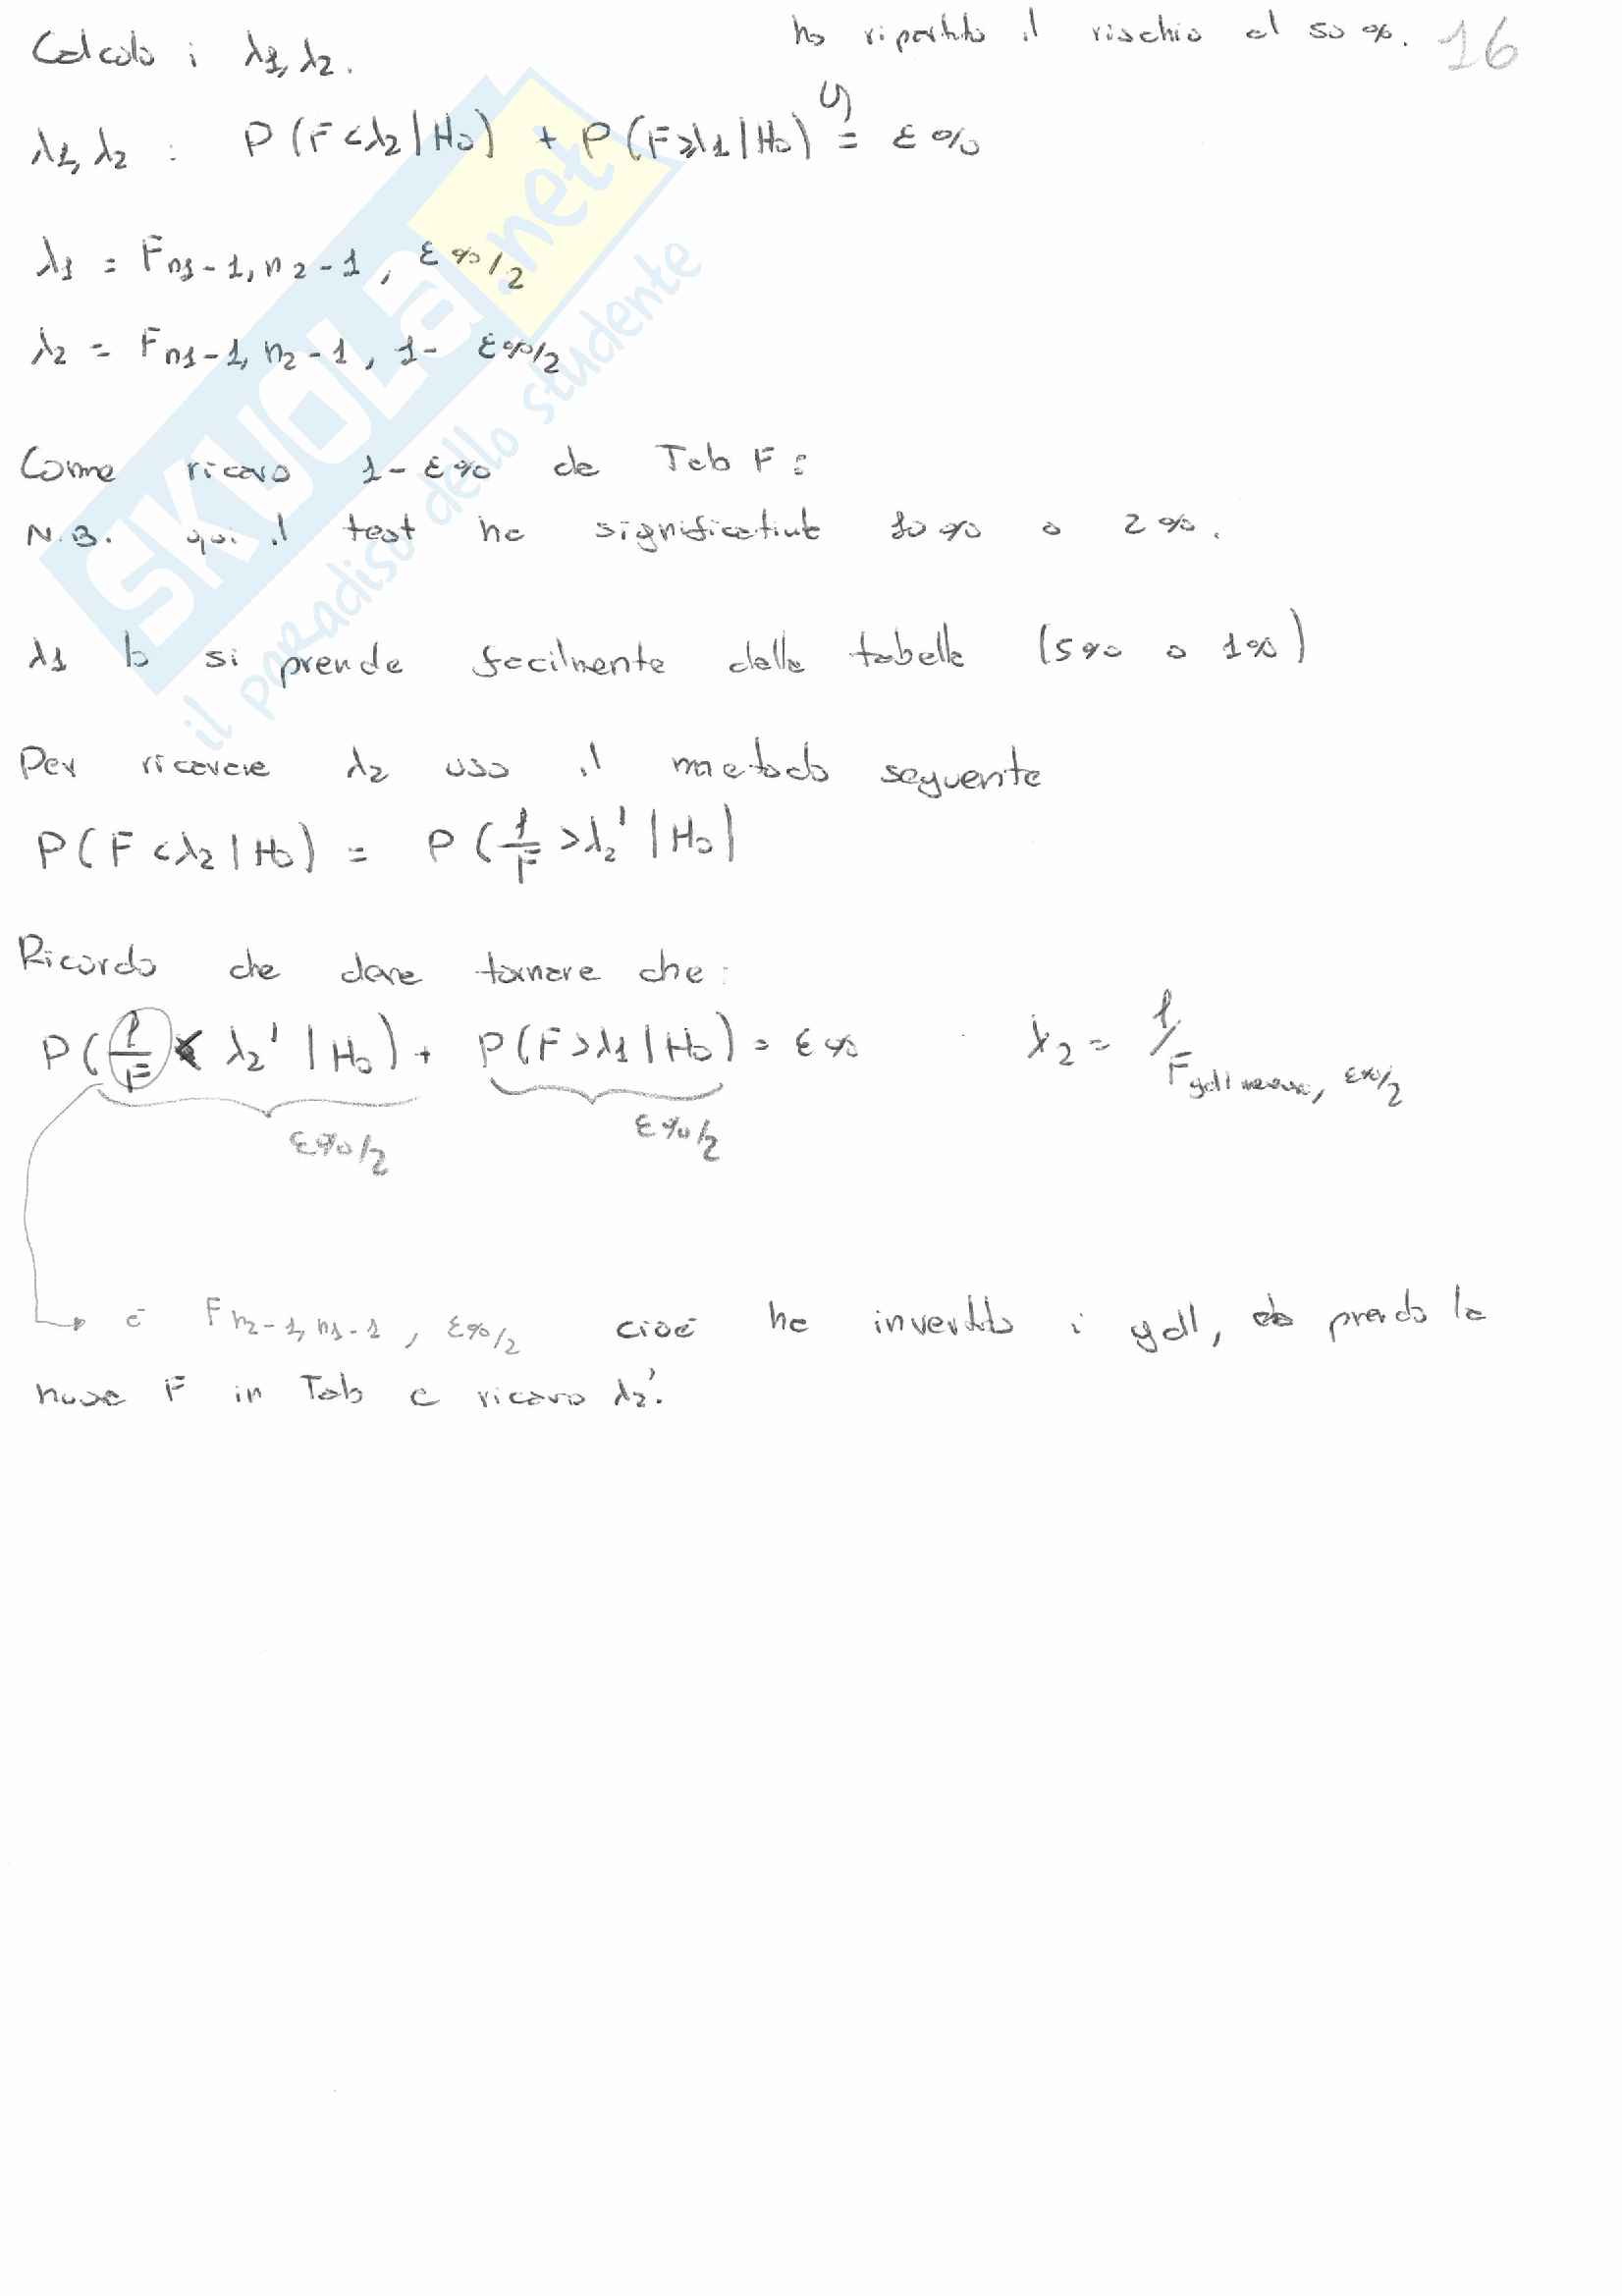 ho ripartito il rischio al 50%. 16
Calcolo i λ1, λ2.
λ1, λ2 : P(F<λ2|H0) + P(F≥λ1|H0) = ε%
λ1 = Fn1-1, n2-1, ε%/2
λ2 = Fn1-1, n2-1, 1-ε%/2
Come ricavo 1-ε% da Tab F:
N.B. qui il test ha significatività 10% o 2%.
λ1 lo si prende facilmente dalla tabella (5% o 1%)
Per ricavare λ2 uso il metodo seguente
P(F<λ2|H0) = P(1/F >λ2'|H0|
Ricordo che deve tornare che:
P(1/F < λ2' |H0) + P(F>λ1|H0) = ε% λ2 = 1/F gdl, ε%/2
ε%/2 ε%/2
è Fn2-1, n1-1, ε%/2 cioè ha invertito i gdl, prendo la
nuova F in Tab e ricavo λ2'.
SKUOLA.net
il paradiso dello studente